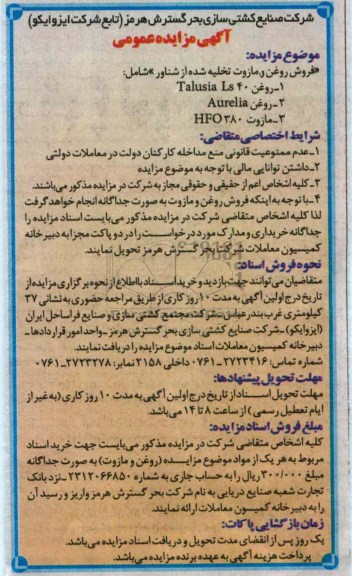 شرکت صنایع کشتی سازی بحر گسترش هرمز (تابع شرکت ایزوایکو)
آگهی مزایده عمومی
موضوع مزایده:
«فروش روغن و مازوت تخلیه شده از شناور» شامل:
۱-روغن Talusia Ls ۴۰
۲-روغن Aurelia
۳-مازوت HFO ۳۸۰
شرایط اختصاصی متقاضی:
۱-عدم ممنوعیت قانونی منع مداخله کارکنان دولت در معاملات دولتی
۲-داشتن توانایی مالی با توجه به موضوع مزایده
۳-کلیه اشخاص اعم از حقیقی و حقوقی مجاز به شرکت در مزایده مذکور می‌باشند.
۴-با توجه به اینکه فروش روغن و مازوت به صورت جداگانه انجام خواهد گرفت
لذا کلیه اشخاص متقاضی شرکت در مزایده مذکور می‌بایست اسناد مزایده را
جداگانه خریداری و مدارک مورد درخواست را در دو پاکت مجزا به دبیرخانه
کمیسیون معاملات شرکت بحر گسترش هرمز تحویل نمایند.
نحوه فروش اسناد:
متقاضیان می‌توانند جهت بازدید و خرید اسناد با اطلاع از نحوه برگزاری مزایده از
تاریخ درج اولین آگهی به مدت ۱۰ روز کاری از طریق مراجعه حضوری به نشانی ۳۷
کیلومتری غرب بندرعباس-شرکت مجتمع کشتی سازی و صنایع فراساحل ایران
(ایزوایکو)-شرکت صنایع کشتی سازی بحر گسترش هرمز-واحد امور قراردادها-
دبیرخانه کمیسیون معاملات اسناد موضوع مزایده را دریافت نمایند.
شماره تماس: ۲۷۲۳۴۱۶-۰۷۶۱ داخلی ۲۱۵۸ نمابر: ۲۷۲۳۲۷۸-۰۷۶۱
مهلت تحویل پیشنهادها:
مهلت تحویل اسناد از تاریخ درج اولین آگهی به مدت ۱۰ روز کاری (به غیر از
ایام تعطیل رسمی) از ساعت ۸ تا ۱۴ می‌باشد.
مبلغ فروش اسناد مزایده:
کلیه اشخاص متقاضی شرکت در مزایده مذکور می‌بایست جهت خرید اسناد
مربوط به هر یک از مواد موضوع مزایده (روغن و مازوت) به صورت جداگانه
مبلغ ۳۰۰/۰۰۰ ریال را به حساب جاری به شماره ۲۳۱۲۰۶۶۸۵۰-نزد بانک
تجارت شعبه صنایع دریایی به نام شرکت بحر گسترش هرمز واریز و رسید آن
را به دبیرخانه کمیسون معاملات ارائه نمایند.
زمان بازگشایی پاکات:
یک روز پس از انقضای مدت تحویل و دریافت اسناد مزایده می‌باشد.
پرداخت هزینه آگهی به عهده برنده مزایده می‌باشد.